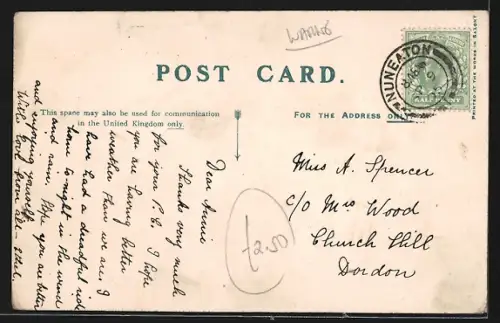 WARKS
POST CARD.
This space may also be used for communication
in the United Kingdom only.
FOR THE ADDRESS ONLY
PRINTED AT THE WORKS IN
NUNEATON
HALFPENNY
Dear Annie
Thanks very much
for your P.C. I hope
you are having better
weather than we are. I
have had a dreadful ride
home to-night in the wind
and rain. Hope you are better
and enjoying yourself
With love from all - Ethel.
£2.50
Miss A. Spencer
C/o Mrs Wood
Church Hill
Dordon